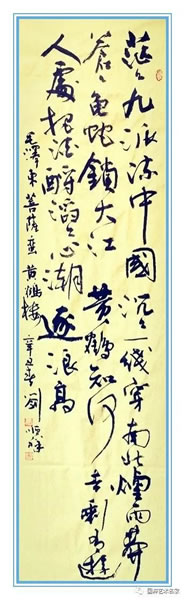 茫々九派流中國沉々一綫穿南北煙雨莽
蒼々龜蛇鎖大江黄鶴知何去剩有遊
人處把酒酹滔々心潮逐浪高
毛澤東菩薩蛮黄鶴樓辛丑春劉